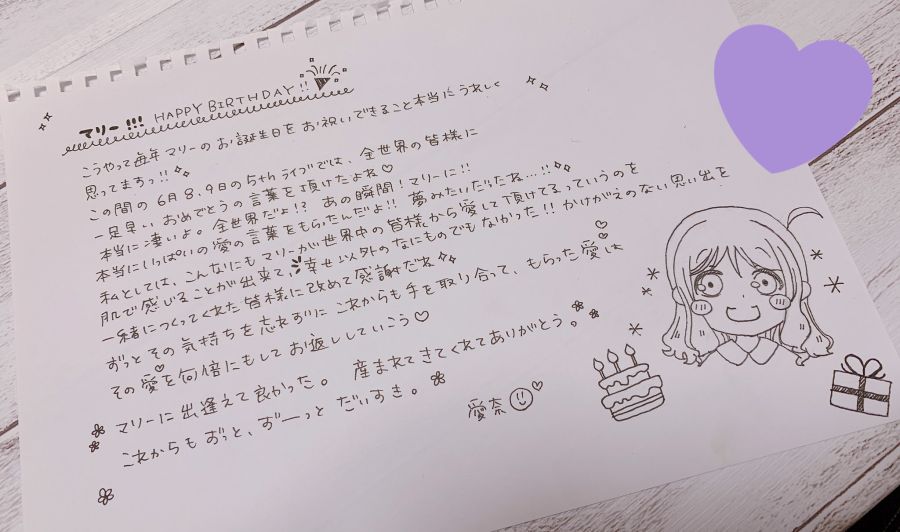 マリー!!! HAPPY BIRTHDAY!!
こうやって毎年マリーのお誕生日をお祝いできること本当にうれしく
思ってますっ!!
この間の6月8.9日の5thライブでは、全世界の皆様に
一足早い、おめでとうの言葉を頂けたよね♡
本当に凄いよ。全世界だよ!?あの瞬間!マリーに!!
本当にいっぱいの愛の言葉をもらったんだよ!!夢みたいだったね…!!
私としては、こんなにもマリーが世界中の皆様から愛して頂けてるっていうのを
肌で感じることが出来て、幸せ以外のなにものでもなかった!!かけがえのない思い出を
一緒につくってくれた皆様に改めて感謝だね
ずっとその気持ちを忘れずにこれからも手を取り合って、もらった愛は
その愛を何倍にもしてお返ししていこう♡
マリーに出逢えて良かった。産まれてきてくれてありがとう。
これからもずっと、ずーっとだいすき。
愛奈